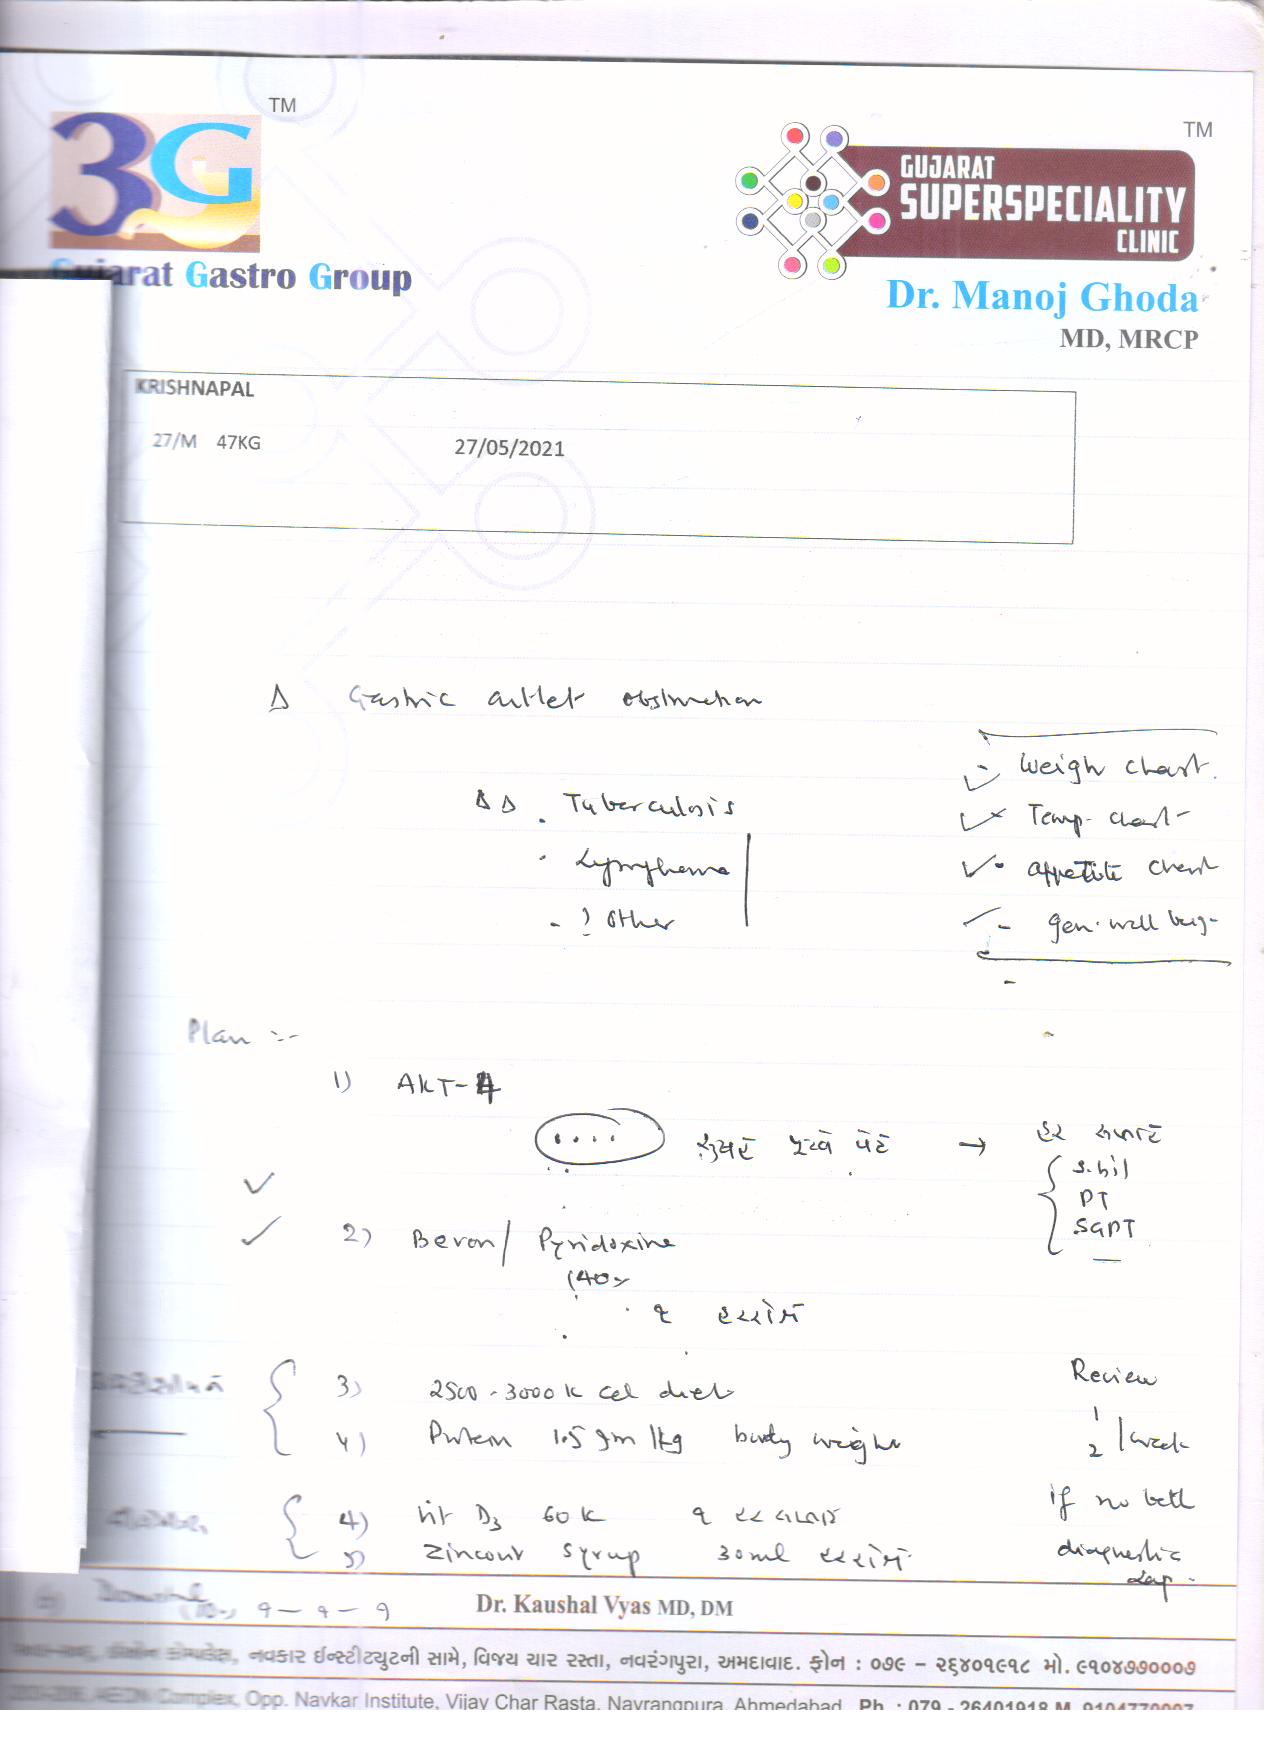 TM
3G
Gujarat Gastro Group
TM
GUJARAT
SUPERSPECIALITY
CLINIC
Dr. Manoj Ghoda
MD, MRCP
KRISHNAPAL
27/M 47KG 27/05/2021
Δ Gastric outlet obstruction
ΔΔ . Tuberculosis
. Lymphoma
- ? Other
- Weigh chart.
Temp. chart
- appetite chart
- gen. well being
Plan :-
1) AKT-4
.... સવારે ભૂખ્યે પેટે → દર
S.bil
PT
SGPT
2) Bevon / Pyridoxine
(40)
૧ દરરોજ
3) 2500-3000 k cal diet
4) Protein 1.5 gm/kg body weight
Review
1
2 /week
if no bett
diagnostic
Lap.
4) Vit D3 60 K ૧ દર
5) Zincovit Syrup 30ml દરરોજ
(10) ૧ - ૧ - ૧
Dr. Kaushal Vyas MD, DM
નવકાર ઈન્સ્ટીટ્યુટની સામે, વિજય ચાર રસ્તા, નવરંગપુરા, અમદાવાદ. ફોન : ૦૭૯ - ૨૬૪૦૧૯૧૮ મો. ૯૧૦૪૭૭૦૦૦૭
Complex, Opp. Navkar Institute, Vijay Char Rasta, Navrangpura, Ahmedabad. Ph. : 079 - 26401918 M. 9104770007